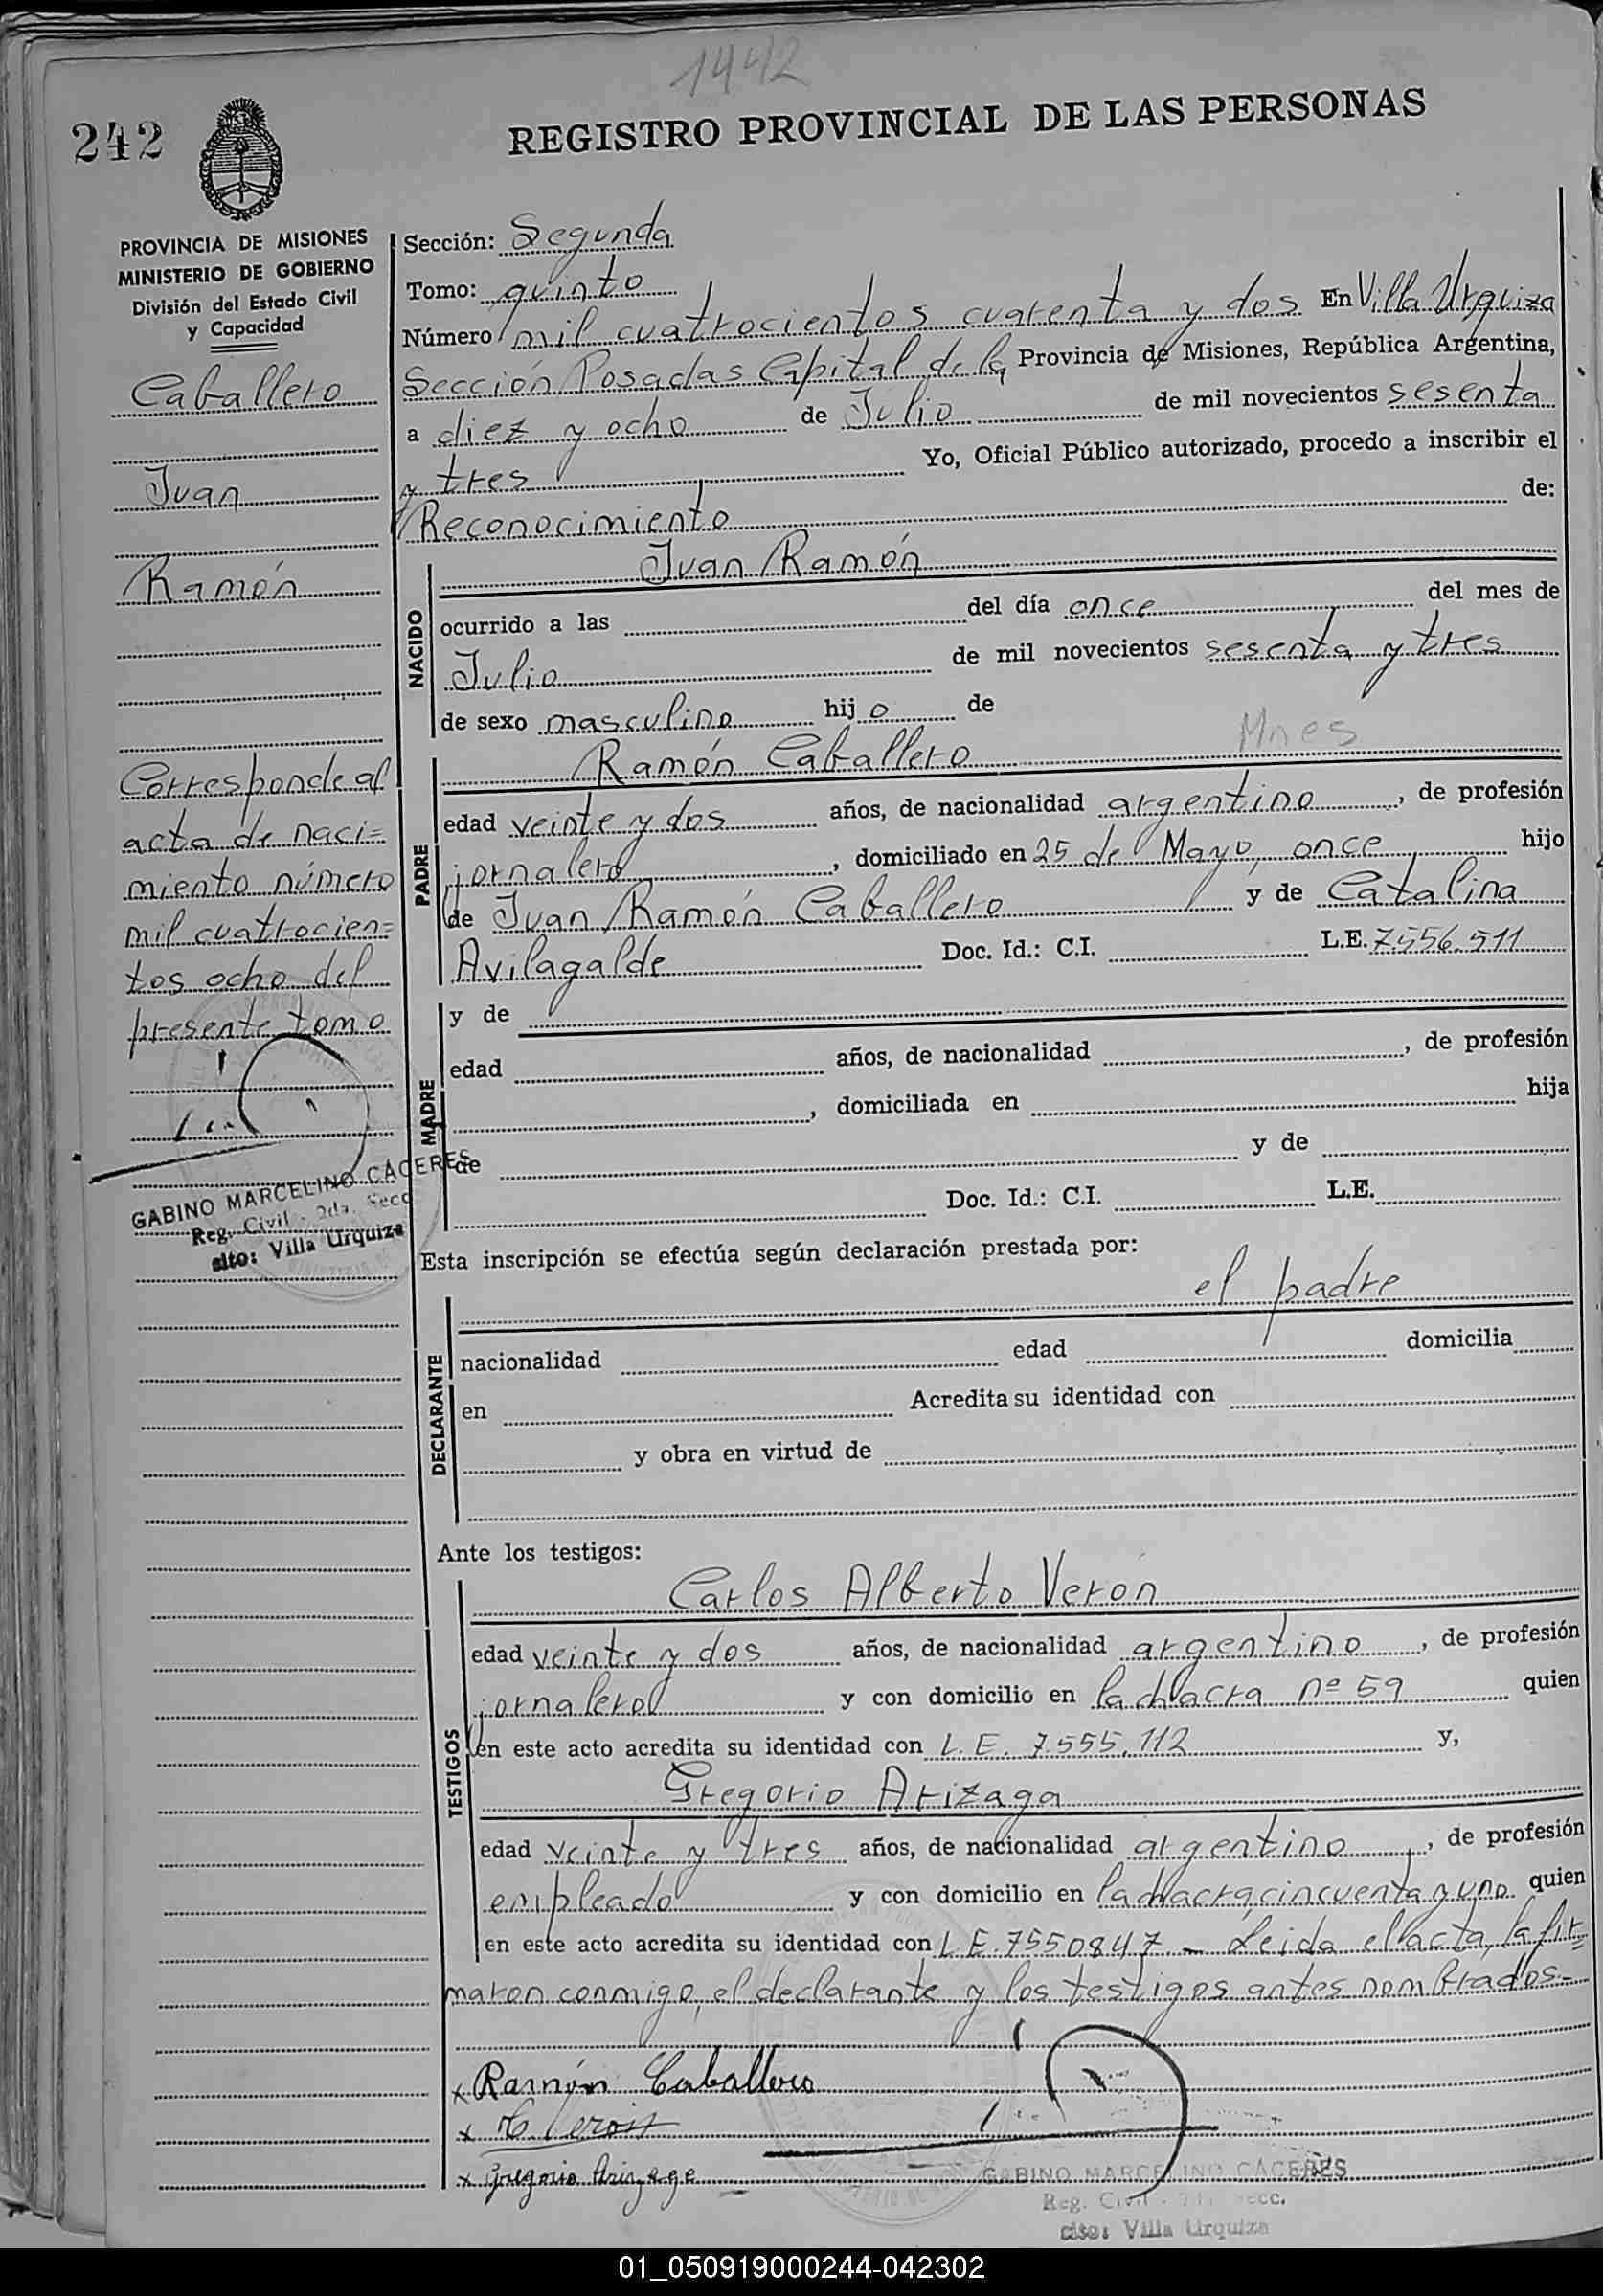 1442
242
REGISTRO PROVINCIAL DE LAS PERSONAS
PROVINCIA DE MISIONES
MINISTERIO DE GOBIERNO
División del Estado Civil
y Capacidad
Caballero
Juan
Ramón
Corresponde al
acta de naci=
miento número
mil cuatrocien=
tos ocho del
presente tomo
GABINO MARCELINO CACERES
Reg. Civil - 2da. Secc
sito: Villa Urquiza
Sección: Segunda
Tomo: quinto
Número mil cuatrocientos cuarenta y dos En Villa Urquiza
Sección Posadas Capital de la Provincia de Misiones, República Argentina,
a diez y ocho de Julio de mil novecientos sesenta
y tres Yo, Oficial Público autorizado, procedo a inscribir el
Reconocimiento de:
NACIDO
Juan Ramón
ocurrido a las del día once del mes de
Julio de mil novecientos sesenta y tres
de sexo masculino hijo de
Mnes
PADRE
Ramón Caballero
edad veinte y dos años, de nacionalidad argentino, de profesión
jornalero, domiciliado en 25 de Mayo, once hijo
de Juan Ramón Caballero y de Catalina
Avilagalde Doc. Id.: C.I. L.E. 7556.511
MADRE
y de
edad años, de nacionalidad , de profesión
, domiciliada en hija
de y de
Doc. Id.: C.I. L.E.
Esta inscripción se efectúa según declaración prestada por:
el padre
DECLARANTE
nacionalidad edad domicilia
en Acredita su identidad con
y obra en virtud de
Ante los testigos:
TESTIGOS
Carlos Alberto Verón
edad veinte y dos años, de nacionalidad argentino, de profesión
jornalero y con domicilio en la chacra nº 59 quien
en este acto acredita su identidad con L.E. 7.555.112 y,
Gregorio Arizaga
edad veinte y tres años, de nacionalidad argentino, de profesión
empleado y con domicilio en la chacra, cincuenta y uno quien
en este acto acredita su identidad con L.E. 7550847 - Leida el acta, la fir=
maron conmigo, el declarante y los testigos antes nombrados-
x Ramón Caballero
x C Veron
x Gregorio Arizaga
GABINO MARCELINO CACERES
Reg. Civil - 2da. Secc.
sito: Villa Urquiza
01_050919000244-042302